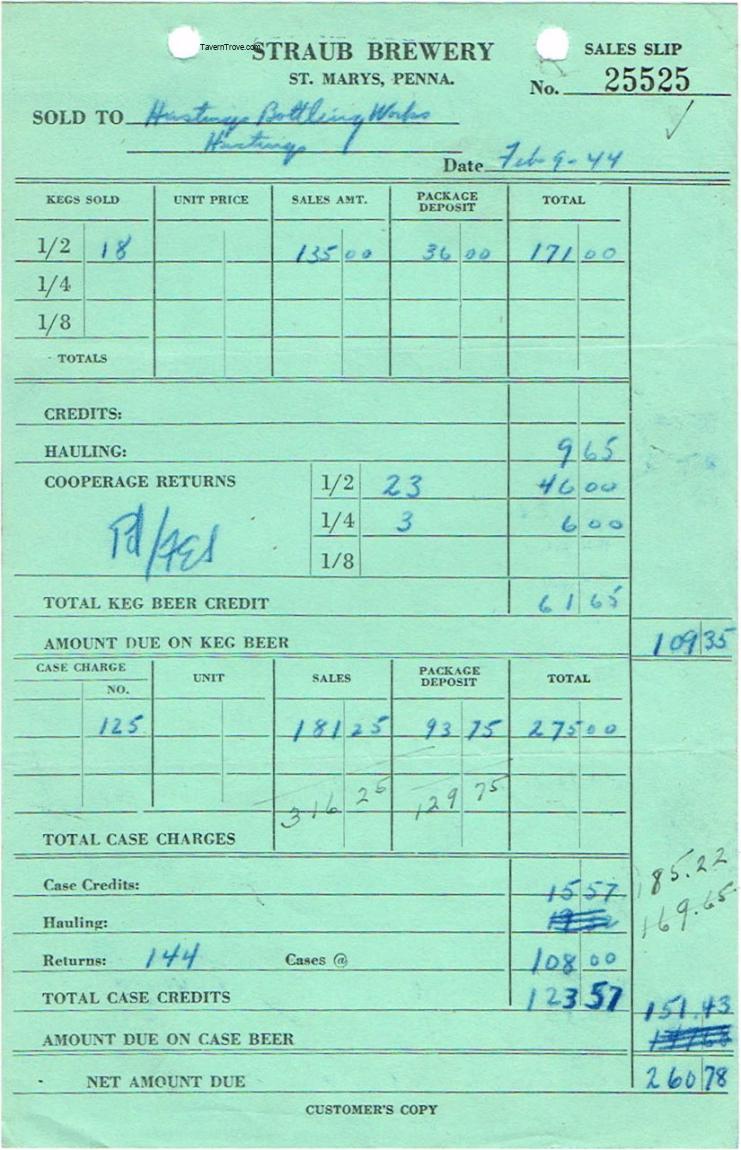 TavernTrove.com
STRAUB BREWERY
SALES SLIP
ST. MARYS, PENNA.
No. 25525
SOLD TO Hastings Bottling Works
Hastings
Date Feb 9-44
KEGS SOLD UNIT PRICE SALES AMT. PACKAGE DEPOSIT TOTAL
1/2 18 135 00 36 00 171 00
1/4
1/8
TOTALS
CREDITS:
HAULING: 9 65
COOPERAGE RETURNS 1/2 23 46 00
1/4 3 6 00
1/8
TOTAL KEG BEER CREDIT 61 65
AMOUNT DUE ON KEG BEER 109 35
CASE CHARGE NO. UNIT SALES PACKAGE DEPOSIT TOTAL
125 181 25 93 75 275 00
316 25 129 75
TOTAL CASE CHARGES
185.22
Case Credits: 15 57
169.65
Hauling:
Returns: 144 Cases @ 108 00
TOTAL CASE CREDITS 123 57
151.43
AMOUNT DUE ON CASE BEER
NET AMOUNT DUE 260 78
CUSTOMER'S COPY